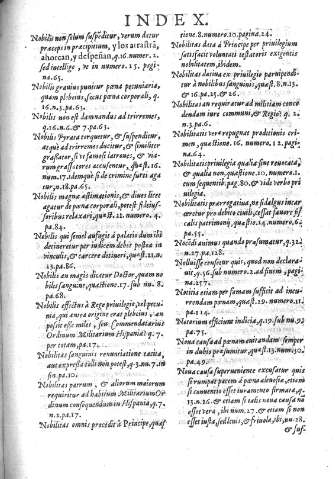 INDEX.
Nobilis non solum suspēditur, verum datur
præceps in præcipitium, y los arrastrā,
ahorcan, y despeñan, q.16. numer. 2.
sed intellige, ve in numero 15. pagi-
na.65.
Nobilis gravius punitur pœna pecuniaria,
quam plebeius, secus pœna corporali, q.
16.n.3.pa.65.
Nobilis non est damnandus ad trirremes,
q.16.n.6. & 7.pa.65.
Nobilis Pyrata torquetur, & suspenditur,
atque ad trirremes ducitur, & similiter
grassator, si
num.17. demque si de crimine
tur.n.18.pa.65.
Nobilis magnæ æstimationis, & dives licet
agatur de pœna corporali, potest fideius-
soribus relaxari, quæst.22. numero. 4.
pa.84.
Nobilis qui semel aufugit à palatio dum ibi
detineretur per iudicem debet postea in
vinculis, & carcere detineri, quæst.21.n.
13.pa.86.
Nobilis an magis dicatur Doctor, quam no
bilis sanguinis, quæstione.17. sub nu. 8.
pa.68.
Nobilis effectus à Rege privilegio, vel pecu-
nia, qui antea origine erat plebeius, an
possit esse miles, seu Commendatarius
Ordinum Militarium Hispaniæ? q.7.
per totam, pa.17.
Nobilitas sanguinis renuntiatione tacita,
aut expressa tolli non potest, q.3.nu.7.in
fin.pa.10.
Nobilitas patrum, & aliorum maiorum
requiritur ad habitum Militarium Or
dinum consequendum in Hispania, q.7.
n.2.pa.17.
Nobilitas omnis procedit à Principe, quæs
tione.8.numero.10.pagina.24.
Nobilitas data à Principe per privilegium
satisfacit voluntati testatoris exigentis
nobilitatem, ibidem.
Nobilitas dativa ex privilegio participandi
tur à nobilibus sanguinis, quæst.8.n.15.
& 16.pa.25. & 26.
Nobilitas an requiratur ad militiam conce
dendam iure communi, & Regio? q. 2.
n.3.pa.6.
Nobilitati vere repugnat proditionis cri-
men, quæstione. 16. numero. 12. pagi-
na.64.
Nobilitatis privilegia qualia sint revocata,
& qualia non, quæstione.10. numero.2.
cum sequentib. pag.80. & vide verbo pri
vilegia.
Nobilitatis prærogativa, ne fidalgus incar-
ceretur pro debito civili, cessat favore fis-
calis patrimonij, quæstio.14. numero.6.
pa.55.
Nocēdi animus quando præsumatur, q.32.
n.27.pa.128.
Noluisse censetur quis, quod non declara-
vit, q.56. sub numero 2. ad finem, pagin.
na.217.
Notitia etiam per famam sufficit ad incur-
rendam pœnam, quæst.29. numero.31.
pa.114.
Notorium efficiunt indicia, q.19. sub nu.92
pa.73.
Nova causa ad pœnam evitandam semper
in dubio præsumitur, quæst.13. numero.30.
pa.49.
Nova causa superveniente excusatur quis
si rumpat pacem à pœna alevosie, etiam
si conventio esset iuramento firmata, q.
13.n.26. & etiam si talis nova causa nō
esset vera, ibi num.27. & etiam si non
esset iusta, sed levis, & frivola, ibi nu.28.
& sus-